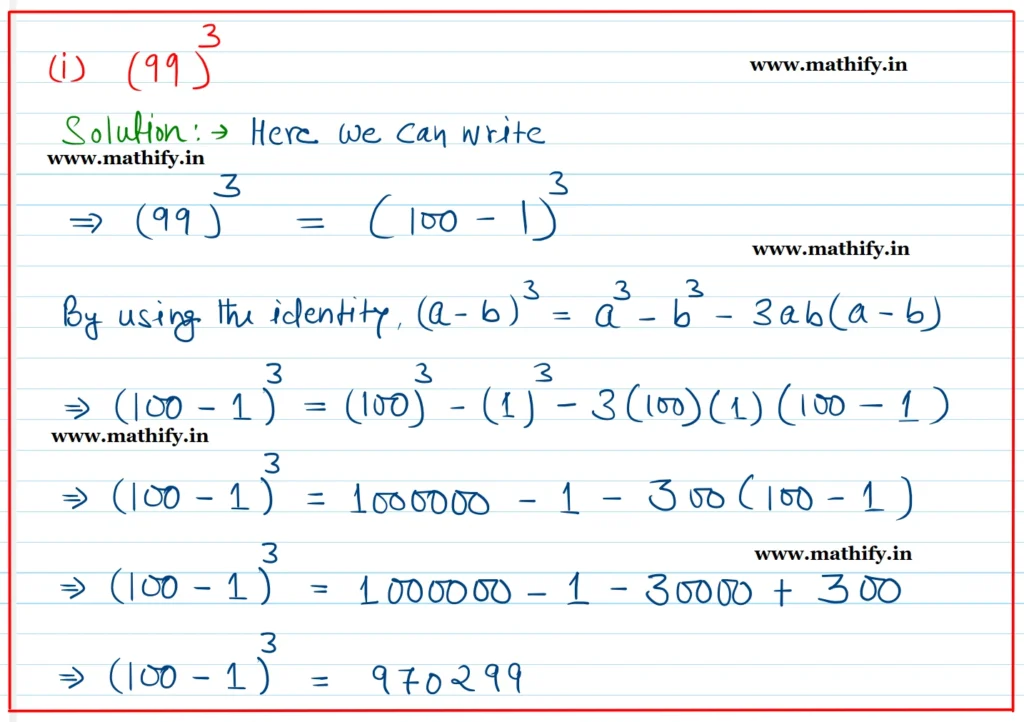 (i) (99)³
www.mathify.in
Solution:→ Here we can write
www.mathify.in
⇒ (99)³ = (100 - 1)³
www.mathify.in
By using the identity, (a-b)³ = a³ - b³ - 3ab(a-b)
⇒ (100 - 1)³ = (100)³ - (1)³ - 3(100)(1)(100 - 1)
www.mathify.in
⇒ (100 - 1)³ = 1000000 - 1 - 300(100 - 1)
www.mathify.in
⇒ (100 - 1)³ = 1000000 - 1 - 30000 + 300
⇒ (100 - 1)³ = 970299